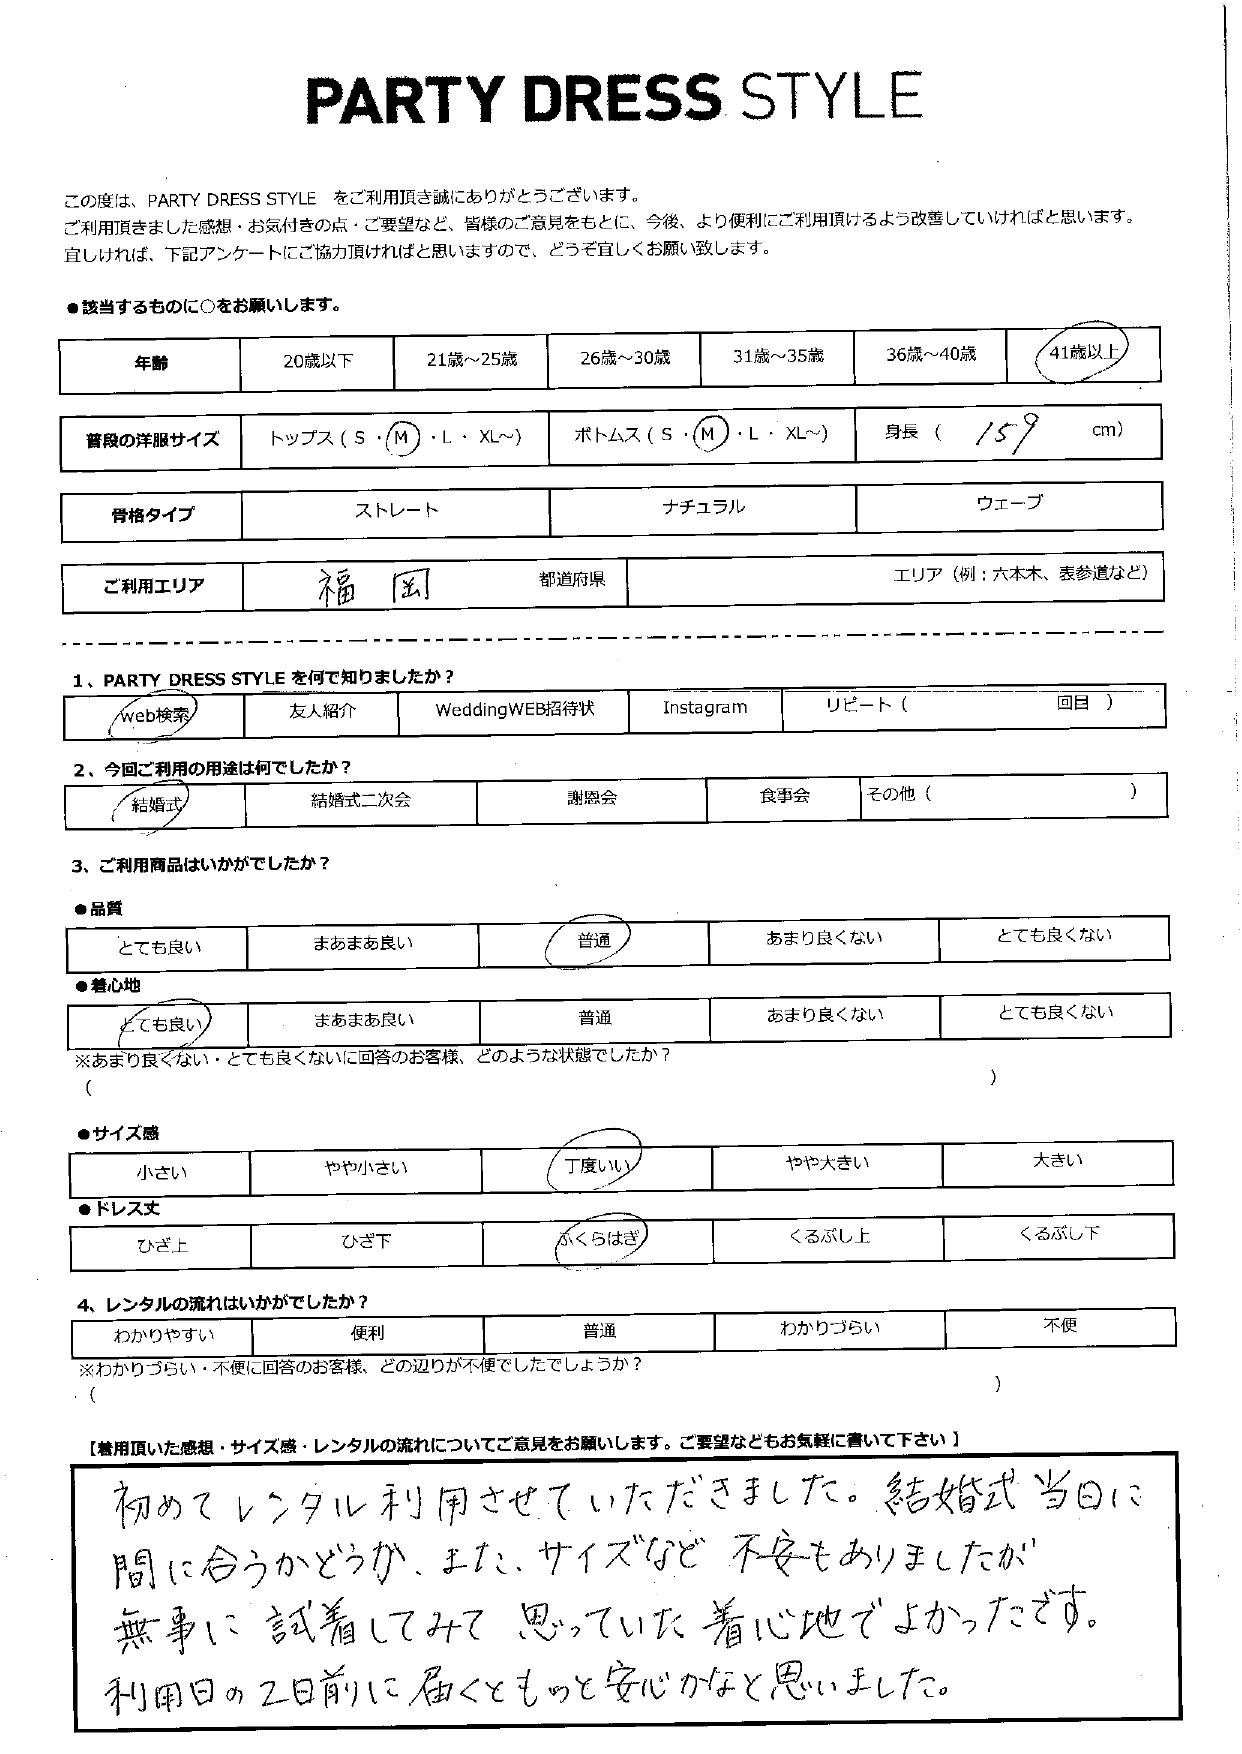 PARTY DRESS STYLE
この度は、PARTY DRESS STYLE をご利用頂き誠にありがとうございます。
ご利用頂きました感想・お気付きの点・ご要望など、皆様のご意見をもとに、今後、より便利にご利用頂けるよう改善していければと思います。
宜しければ、下記アンケートにご協力頂ければと思いますので、どうぞ宜しくお願い致します。
●該当するものに○をお願いします。
年齢 20歳以下 21歳～25歳 26歳～30歳 31歳～35歳 36歳～40歳 41歳以上
普段の洋服サイズ トップス（ S ・ M ・ L ・ XL～） ボトムス（ S ・ M ・ L ・ XL～） 身長 （ 159 cm）
骨格タイプ ストレート ナチュラル ウェーブ
ご利用エリア 福岡 都道府県 エリア（例：六本木、表参道など）
1、PARTY DRESS STYLE を何で知りましたか？
Web検索 友人紹介 WeddingWEB招待状 Instagram リピート（ 回目 ）
2、今回ご利用の用途は何でしたか？
結婚式 結婚式二次会 謝恩会 食事会 その他（ ）
3、ご利用商品はいかがでしたか？
●品質
とても良い まあまあ良い 普通 あまり良くない とても良くない
●着心地
とても良い まあまあ良い 普通 あまり良くない とても良くない
※あまり良くない・とても良くないに回答のお客様、どのような状態でしたか？
（ ）
●サイズ感
小さい やや小さい 丁度いい やや大きい 大きい
●ドレス丈
ひざ上 ひざ下 ふくらはぎ くるぶし上 くるぶし下
4、レンタルの流れはいかがでしたか？
わかりやすい 便利 普通 わかりづらい 不便
※わかりづらい・不便に回答のお客様、どの辺りが不便でしたでしょうか？
（ ）
【着用頂いた感想・サイズ感・レンタルの流れについてご意見をお願いします。ご要望などもお気軽に書いて下さい 】
初めてレンタル利用させていただきました。結婚式当日に
間に合うかどうか、また、サイズなど 不安もありましたが
無事に 試着してみて 思っていた 着心地でよかったです。
利用日の2日前に届くともっと安心かなと思いました。